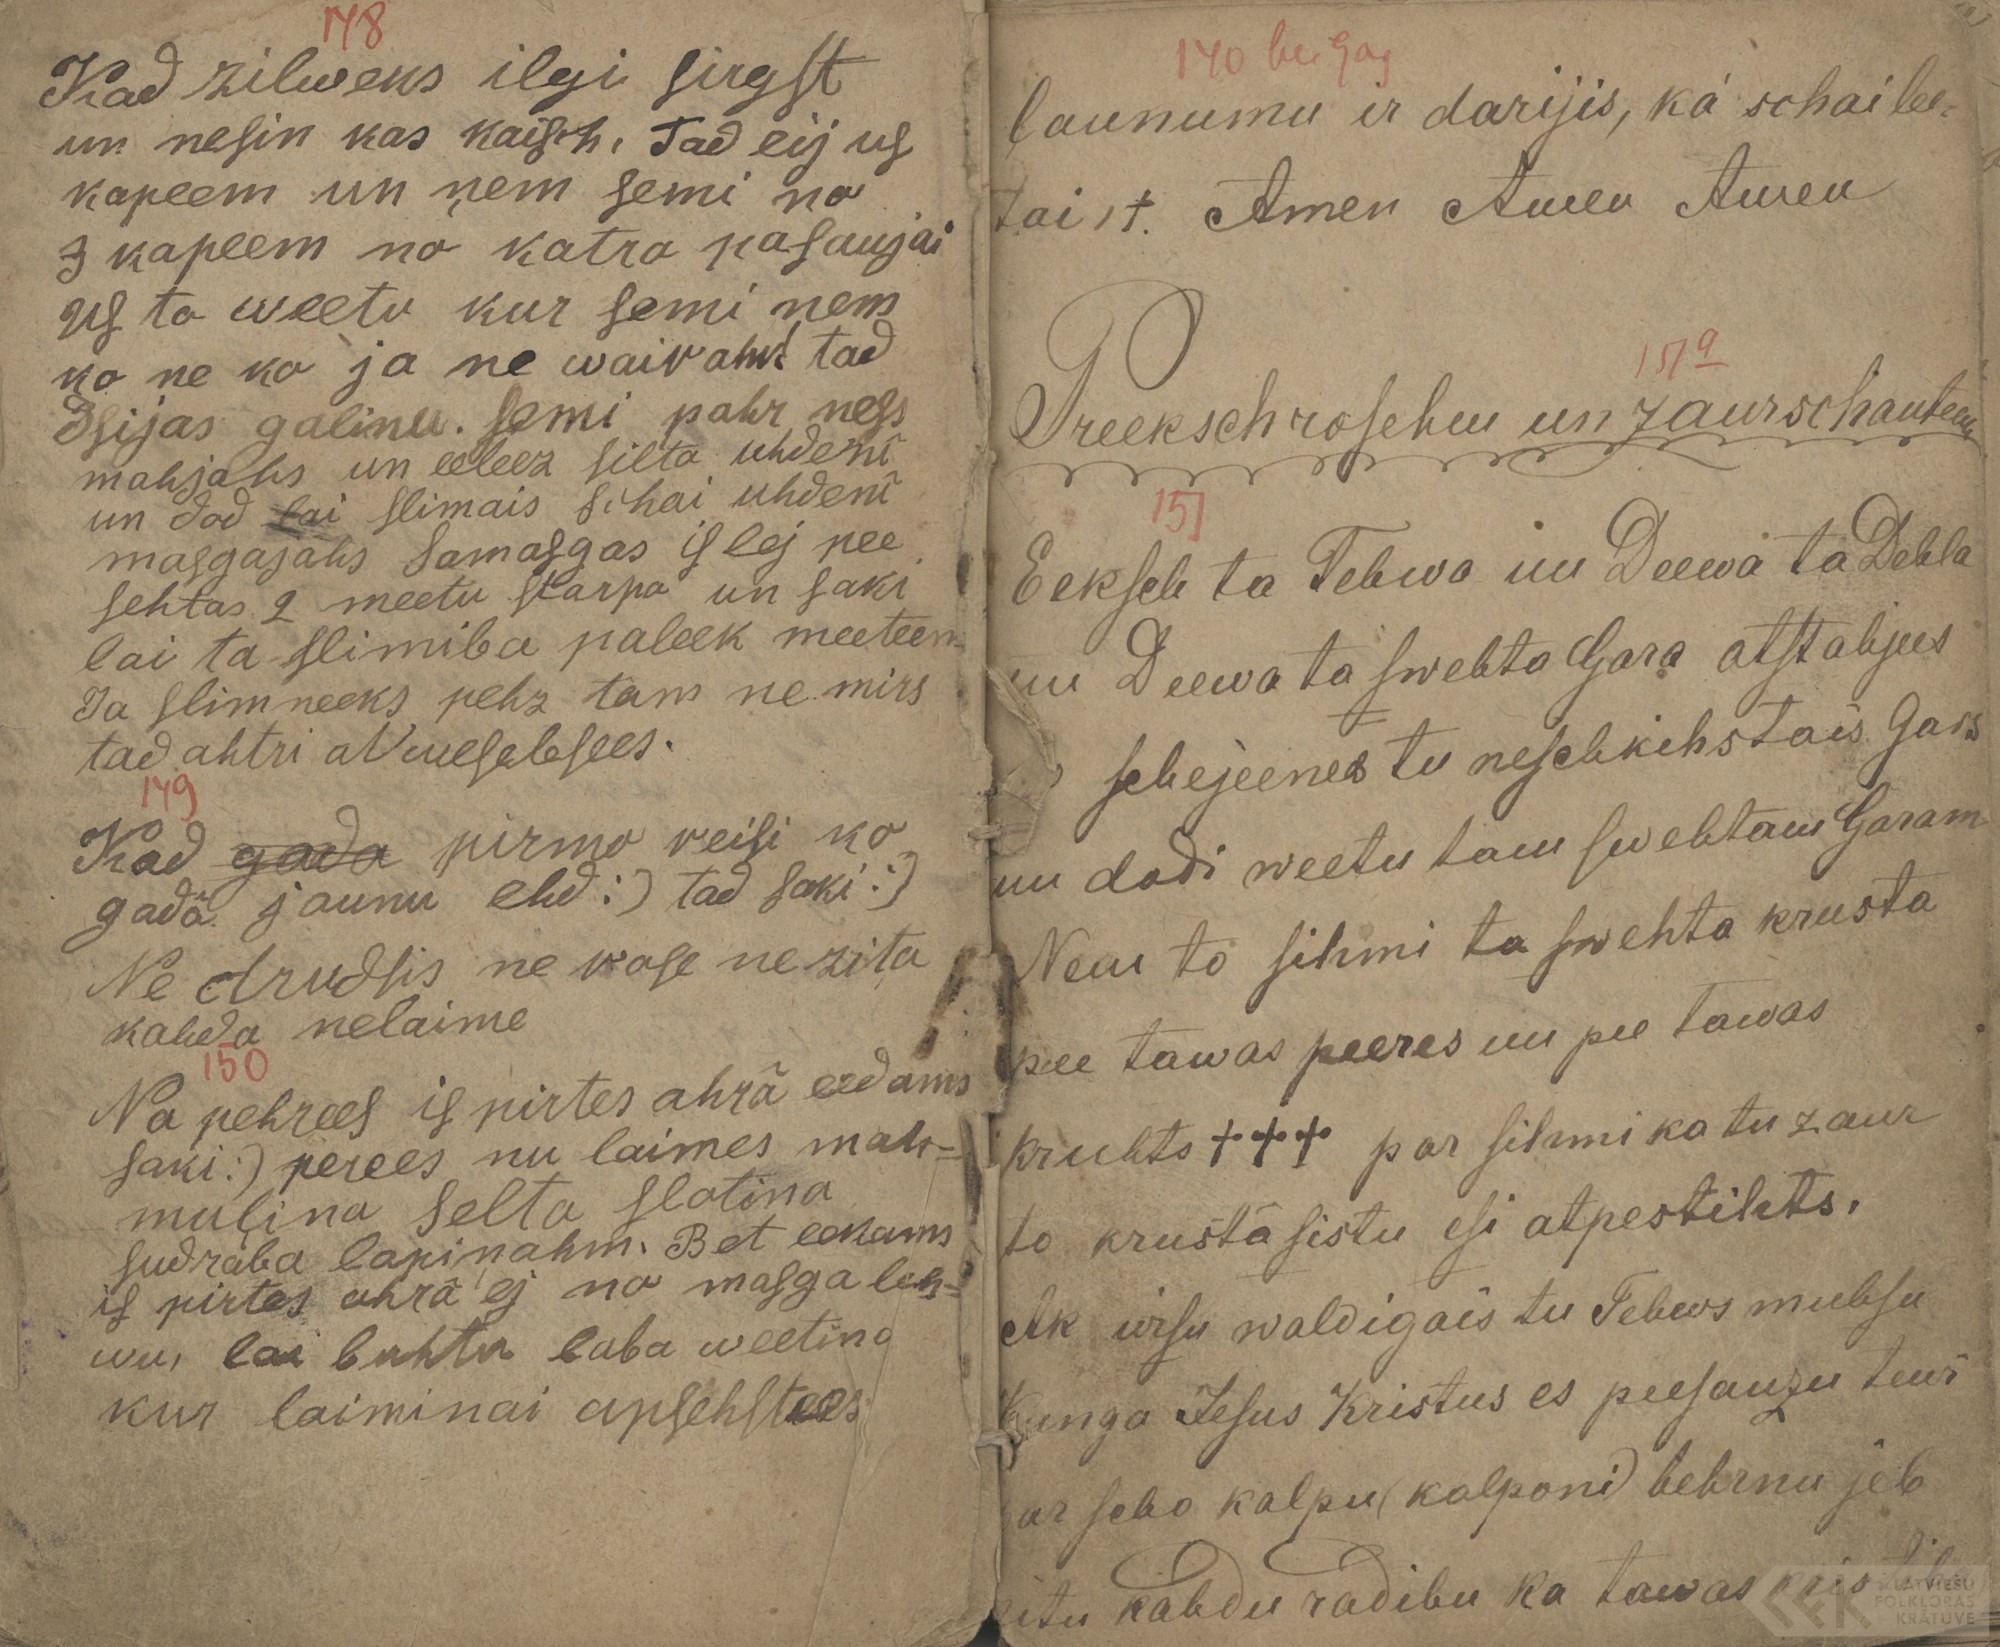 148
Kad zilweks ilgi sirgst
un nesin kas kaisch. Tad eij us
kapeem un ņem semi no
3 kapeem no katra pasaujai
us to weetu kur semi nem
ko ne ko ja ne wairahk tad
dsijas galinu. semi pahr ness
mahjahs un eeleez silta uhdenī
un dod lai slimais schai uhdenī
masgajahs Samasgas is lej pee
sehtas 2 meetu starpa un saki
lai ta slimiba paleek meeteem
Ja slimneeks pehz tam ne mirs
tad ahtri atweselosees.
149
Kad gada pirmo reisi ko
gadā jaunu ehd :) tad saki :)
Ne drudsis ne rose ne zita
kahda nelaime
150
No pehrees is pirtes ahrā eedams
saki :) perees nu laimes mah-
mulina selta slotina
sudraba lapiņahm. Bet eekams
is pirtes ahrā ej no masga lah-
wu, lai buhtu laba weetina
kur laiminai apsehstees
140 beigas
launumu ir darijis, kā schai lee-
tai ,t. Amen Amen Amen
151a
Preeksch rosehm un zaurschauteem
151
Eeksch ta Tehwa un Deewa ta Dehla
un Deewa ta swehta Gara atstahjees
schejeenes tu neschkihstais Gars
un dodi weetu tam swehtam Garam
Nem to sihmi ta swehta krusta
pee tawas peeres un pee tawas
kruhts +++ par sihmi ka tu zaur
to krustā sistu esi atpestihts.
Ak wisu waldigais tu Tehws muhsu
Kunga Jesus Kristus es peesauzu tewi
par scho kalpu (kalponi) behrnu jeb
zitu kahdu radibu ka tawas
LATVIEŠU
FOLKLORAS
KRĀTUVE